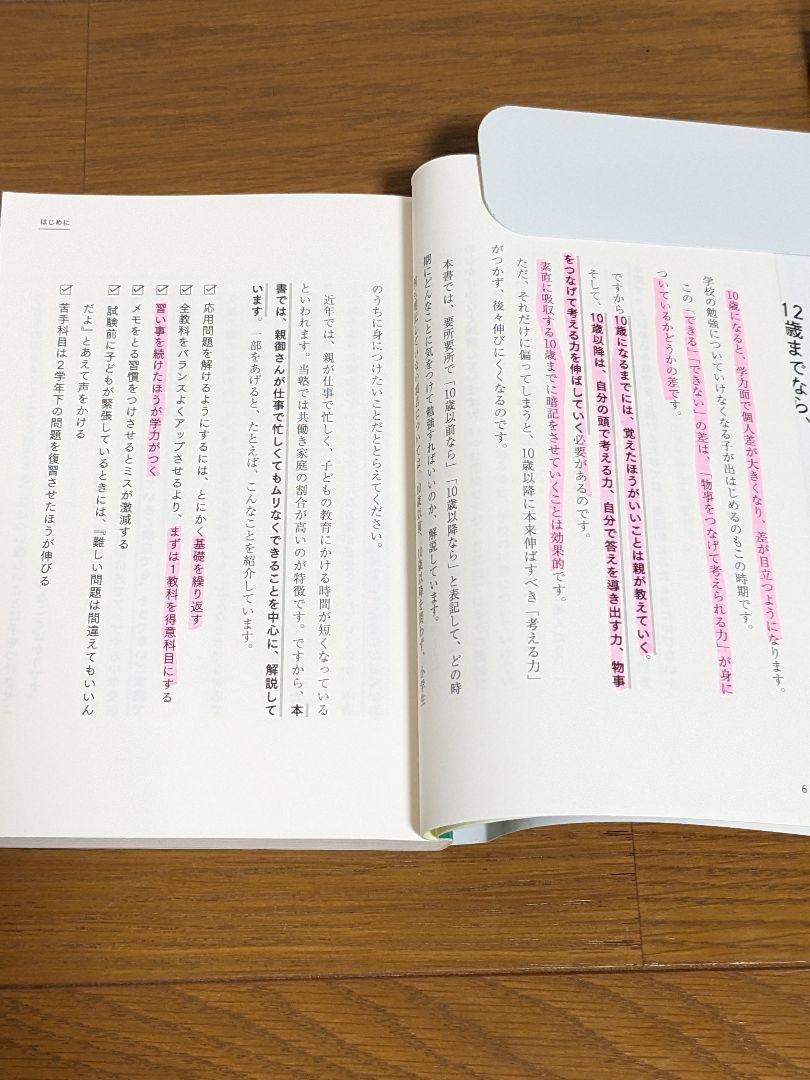 12歳までなら、
10歳になると、学力面で個人差が大きくなり、差が目立つようになります。
学校の勉強についていけなくなる子が出はじめるのもこの時期です。
この「できる」「できない」の差は、「物事をつなげて考えられる力」が身に
ついているかどうかの差です。
ですから10歳になるまでには、覚えたほうがいいことは親が教えていく。
そして、10歳以降は、自分の頭で考える力、自分で答えを導き出す力、物事
をつなげて考える力を伸ばしていく必要があるのです。
素直に吸収する10歳までに暗記をさせていくことは効果的です。
ただ、それだけに偏ってしまうと、10歳以降に本来伸ばすべき「考える力」
がつかず、後々伸びにくくなるのです。
本書では、要所要所で「10歳以前なら」「10歳以降なら」と表記して、どの時
期にどんなことに気をつけて勉強すればいいのか、解説しています。
10歳以降を問わず、小学生
6
はじめに
のうちに身につけたいことだととらえてください。
近年では、親が仕事で忙しく、子どもの教育にかける時間が短くなっている
といわれます。当塾では共働き家庭の割合が高いのが特徴です。ですから、本
書では、親御さんが仕事で忙しくてもムリなくできることを中心に、解説して
います。一部をあげると、たとえば、こんなことを紹介しています。
☑ 応用問題を解けるようにするには、とにかく基礎を繰り返す
☑ 全教科をバランスよくアップさせるより、まずは1教科を得意科目にする
☑ 習い事を続けたほうが学力がつく
☑ メモをとる習慣をつけさせるとミスが激減する
☑ 試験前に子どもが緊張しているときには、『難しい問題は間違えてもいいん
だよ』とあえて声をかける
☑ 苦手科目は2学年下の問題を復習させたほうが伸びる